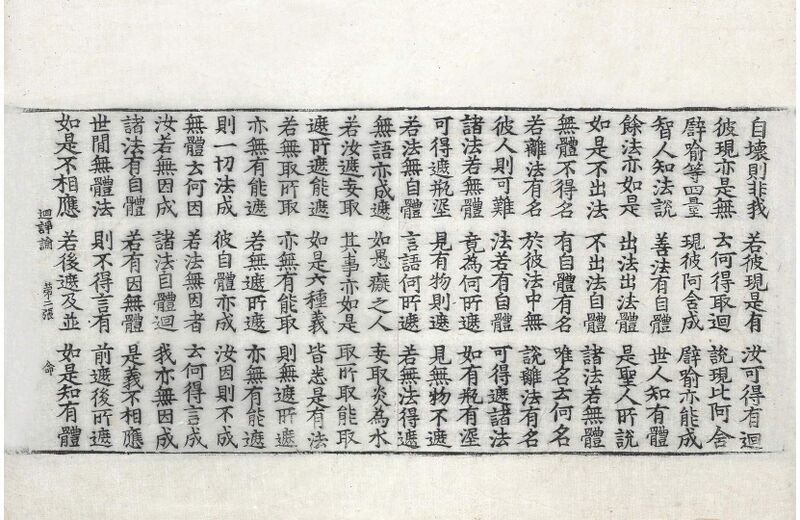 自壞則非我 若彼現是有 汝可得有迴
彼現亦是無 云何得取迴 說現比阿含
譬喻等四量 現彼阿含成 譬喻亦能成
智人知法說 善法有自體 世人知有體
餘法亦如是 出法出法體 是聖人所說
如是不出法 不出法自體 諸法若無體
無體不得名 有自體有名 唯名云何名
若離法有名 於彼法中無 說離法有名
彼人則可難 法若有自體 可得遮諸法
諸法若無體 竟為何所遮 如有瓶有埿
可得遮瓶埿 見有物則遮 見無物不遮
若法無自體 言語何所遮 若無法得遮
無語亦成遮 如愚癡之人 妄取炎為水
若汝遮妄取 其事亦如是 取所取能取
遮所遮能遮 如是六種義 皆悉是有法
若無取所取 亦無有能取 則無遮所遮
亦無有能遮 若無遮所遮 亦無有能遮
則一切法成 彼自體亦成 汝因則不成
無體云何因 若法無因者 云何得言成
汝若無因成 諸法自體迴 我亦無因成
諸法有自體 若有因無體 是義不相應
世間無體法 則不得言有 前遮後所遮
如是不相應 若後遮及並 如是知有體
迴諍論 第二張 命